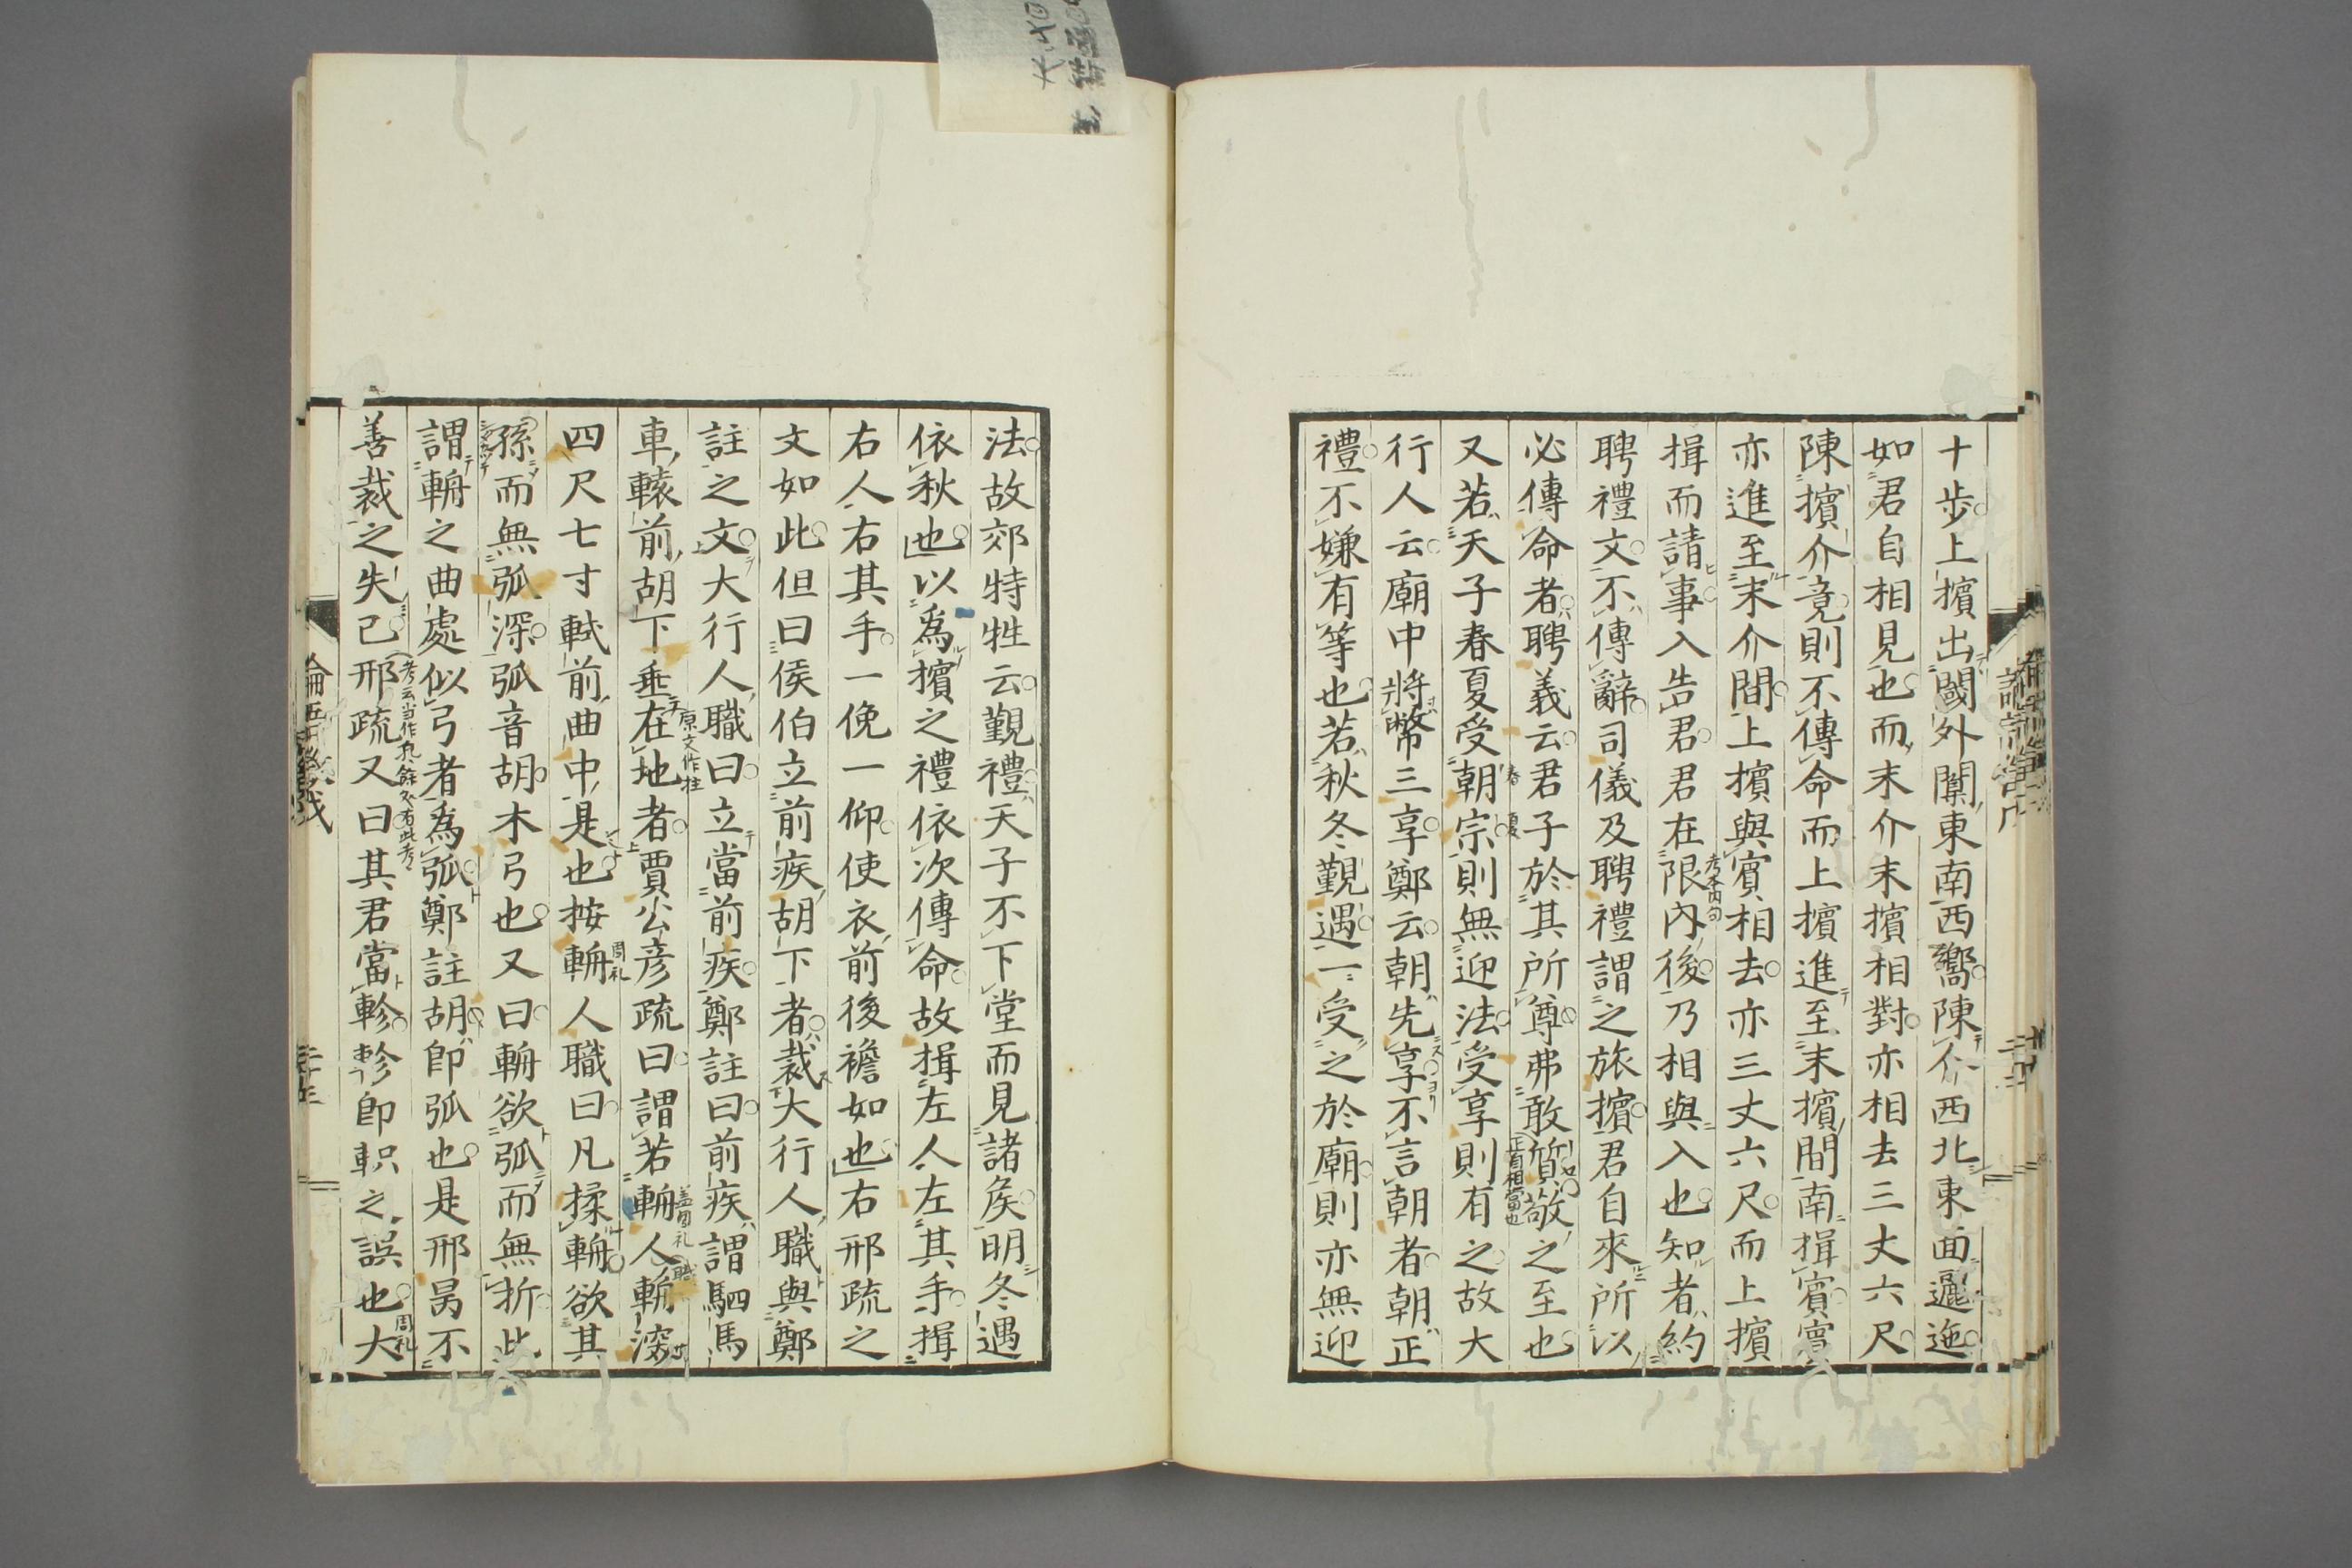 十步上擯出閾外闑東南西嚮陳介西北東面邐迤
如君自相見也而末介末擯相對亦相去三丈六尺
陳擯介竟則不傳命而上擯進至末擯間南揖賓賓
亦進至末介間上擯與賓相去亦三丈六尺而上擯
揖而請事入告君君在限內後乃相與入也知者約
聘禮文不傳辭司儀及聘禮謂之旅擯君自來所以
必傳命者聘義云君子於其所尊弗敢質敬之至也
又若天子春夏受朝宗則無迎法受享則有之故大
行人云廟中將幣三享鄭云朝先享不言朝者朝正
禮不嫌有等也若秋冬覲遇一受之於廟則亦無迎
法故郊特牲云覲禮天子不下堂而見諸侯明冬遇
依秋也以為擯之禮依次傳命故揖左人左其手揖
右人右其手一俛一仰使衣前後襜如也右邢疏之
文如此但曰侯伯立前疾胡下者裁大行人職與鄭
註之文大行人職曰立當前疾鄭註曰前疾謂駟馬
車轅前胡下垂在地者賈公彥疏曰謂若輈人輈深
原文作柱
四尺七寸軾前曲中是也按輈人職曰凡揉輈欲其
周礼
孫而無弧深弧音胡木弓也又曰輈欲弧而無折此
謂輈之曲處似弓者為弧鄭註胡即弧也是邢昺不
善裁之失已邢疏又曰其君當軫軫即軹之誤也大
周礼